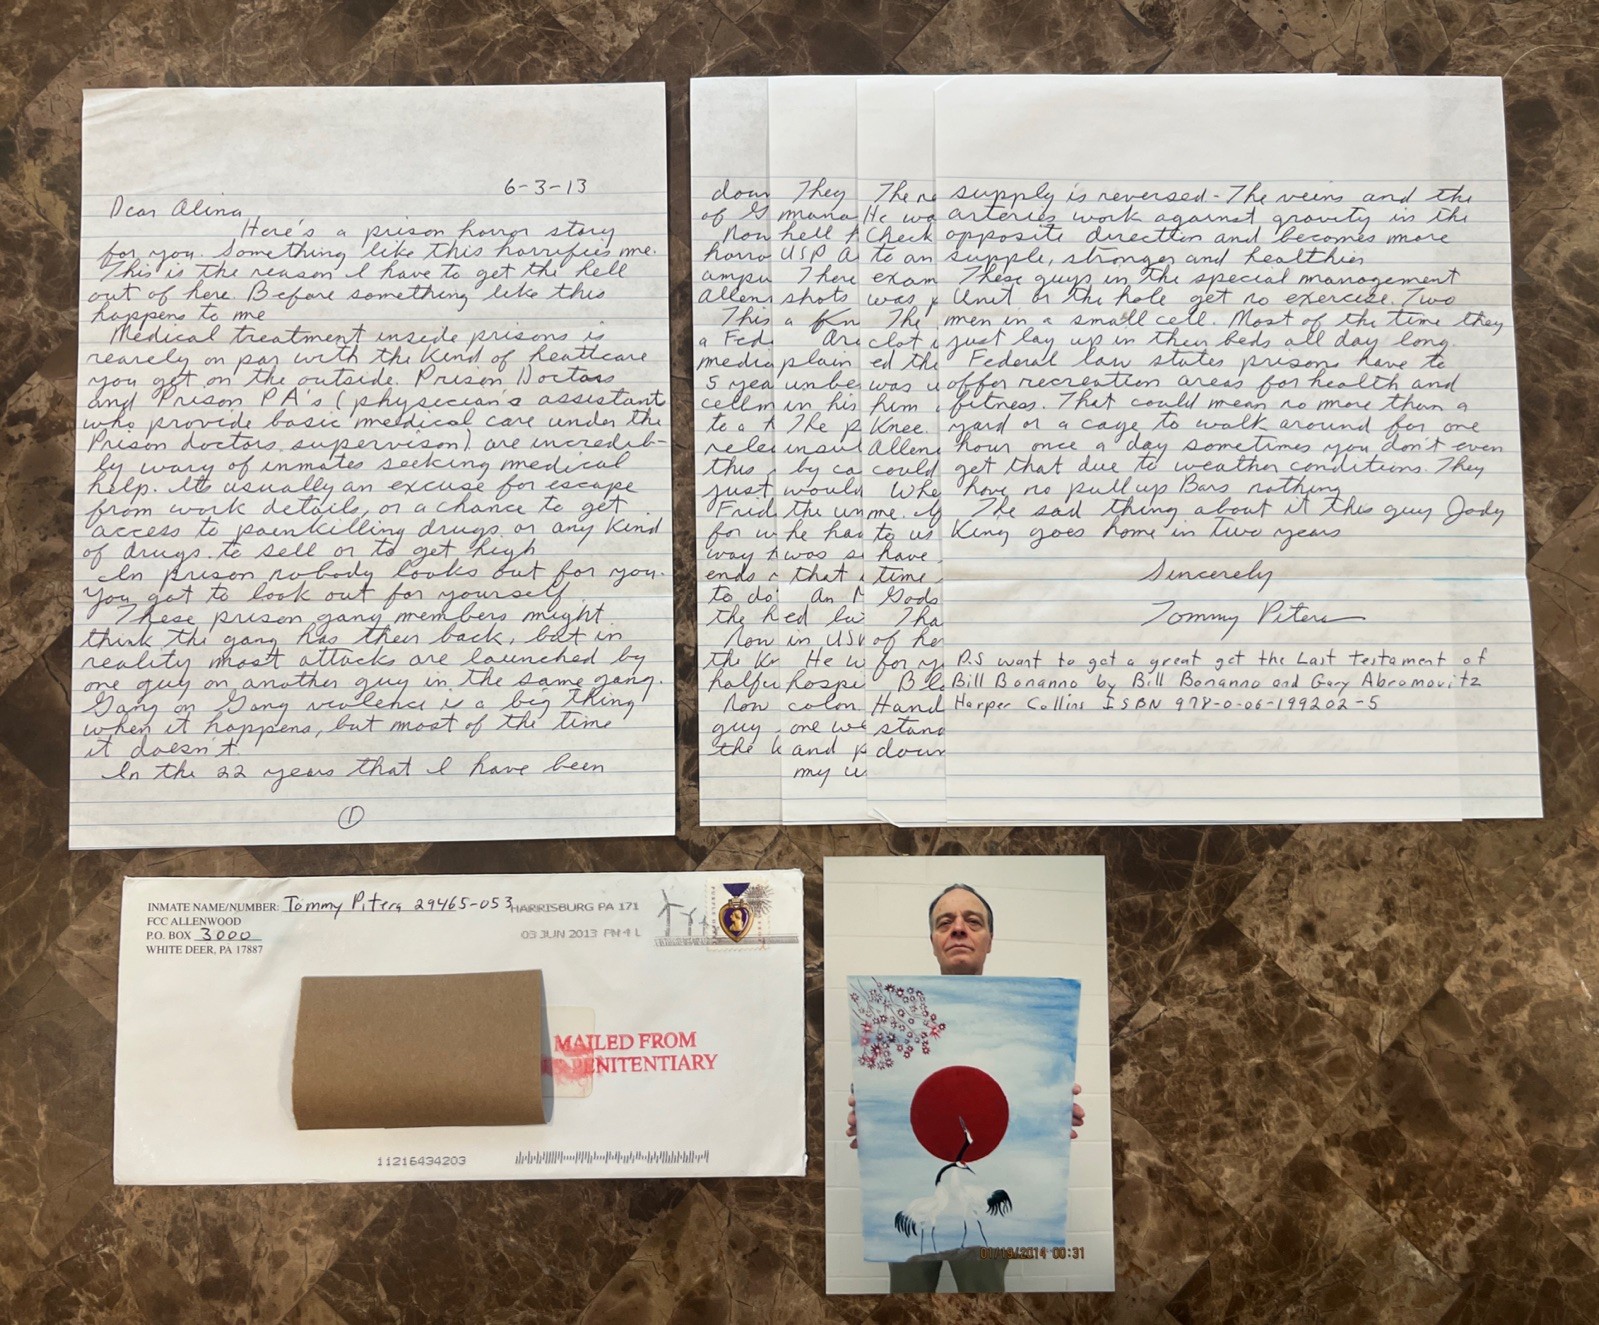 6-3-13
Dear Alina
Here's a prison horror story
for you. Something like this horrifies me.
This is the reason I have to get the hell
out of here. Before something like this
happens to me
Medical treatment inside prisons is
rearely on par with the kind of heathcare
you get on the outside. Prison Doctors
and Prison PA's (physician's assistant
who provide basic medical care under the
Prison doctors supervison) are incredib-
by wary of inmates seeking medical
help. Its usually an excuse for escape
from work details, or a chance to get
access to painkilling drugs or any kind
of drugs to sell or to get high
In prison nobody looks out for you.
You got to look out for yourself
These prison gang members might
think the gang has their back, but in
reality most attacks are launched by
one guy on another guy in the same gang.
Gang on Gang violence is a big thing
when it happens, but most of the time
it doesn't
In the 22 years that I have been
①
down
of G
Now
horro
ampu
Allen
This
a Fed
medic
5 yea
cellm
to a
relea
this
just
Frid
for w
way
ends
to do
the h
Now
the Kn
halfw
Now
guy
the k
They
mana
hell
USP A
There
shots
a Kn
Are
plain
unbe
in his
The p
insur
by ca
would
the un
he had
was s
that
An
ed
in USP
He w
hospi
colon
one we
and p
my
The ne
He wa
Check
to an
exam
was
The
clot
ed the
was u
him
Knee.
Allen
could
Whe
me.
to us
have
time
Gods
Tha
of he
for my
Blo
Hand
stand
down
supply is reversed - The veins and the
arteries work against gravity in the
opposite direction and becomes more
supple, stronger and healthier
These guys in the special management
Unit or the hole get no exercise. Two
men in a small cell. Most of the time they
just lay up in their beds all day long.
Federal law states prisons have to
offer recreation areas for health and
fitness. That could mean no more than a
yard or a cage to walk around for one
hour once a day sometimes you don't even
get that due to weather conditions. They
have no pull up Bars nothing
The sad thing about it this guy Jody
King goes home in two years
Sincerely
Tommy Pitera
P.S want to get a great get the Last Testament of
Bill Bonanno by Bill Bonanno and Gary Abromovitz
Harper Collins ISBN 978-0-06-199202-5
INMATE NAME/NUMBER: Tommy Pitera 29465-053
FCC ALLENWOOD
P.O. BOX 3000
WHITE DEER, PA 17887
HARRISBURG PA 171
03 JUN 2013 PM 4 L
MAILED FROM
PENITENTIARY
11216434203
2014 00:31